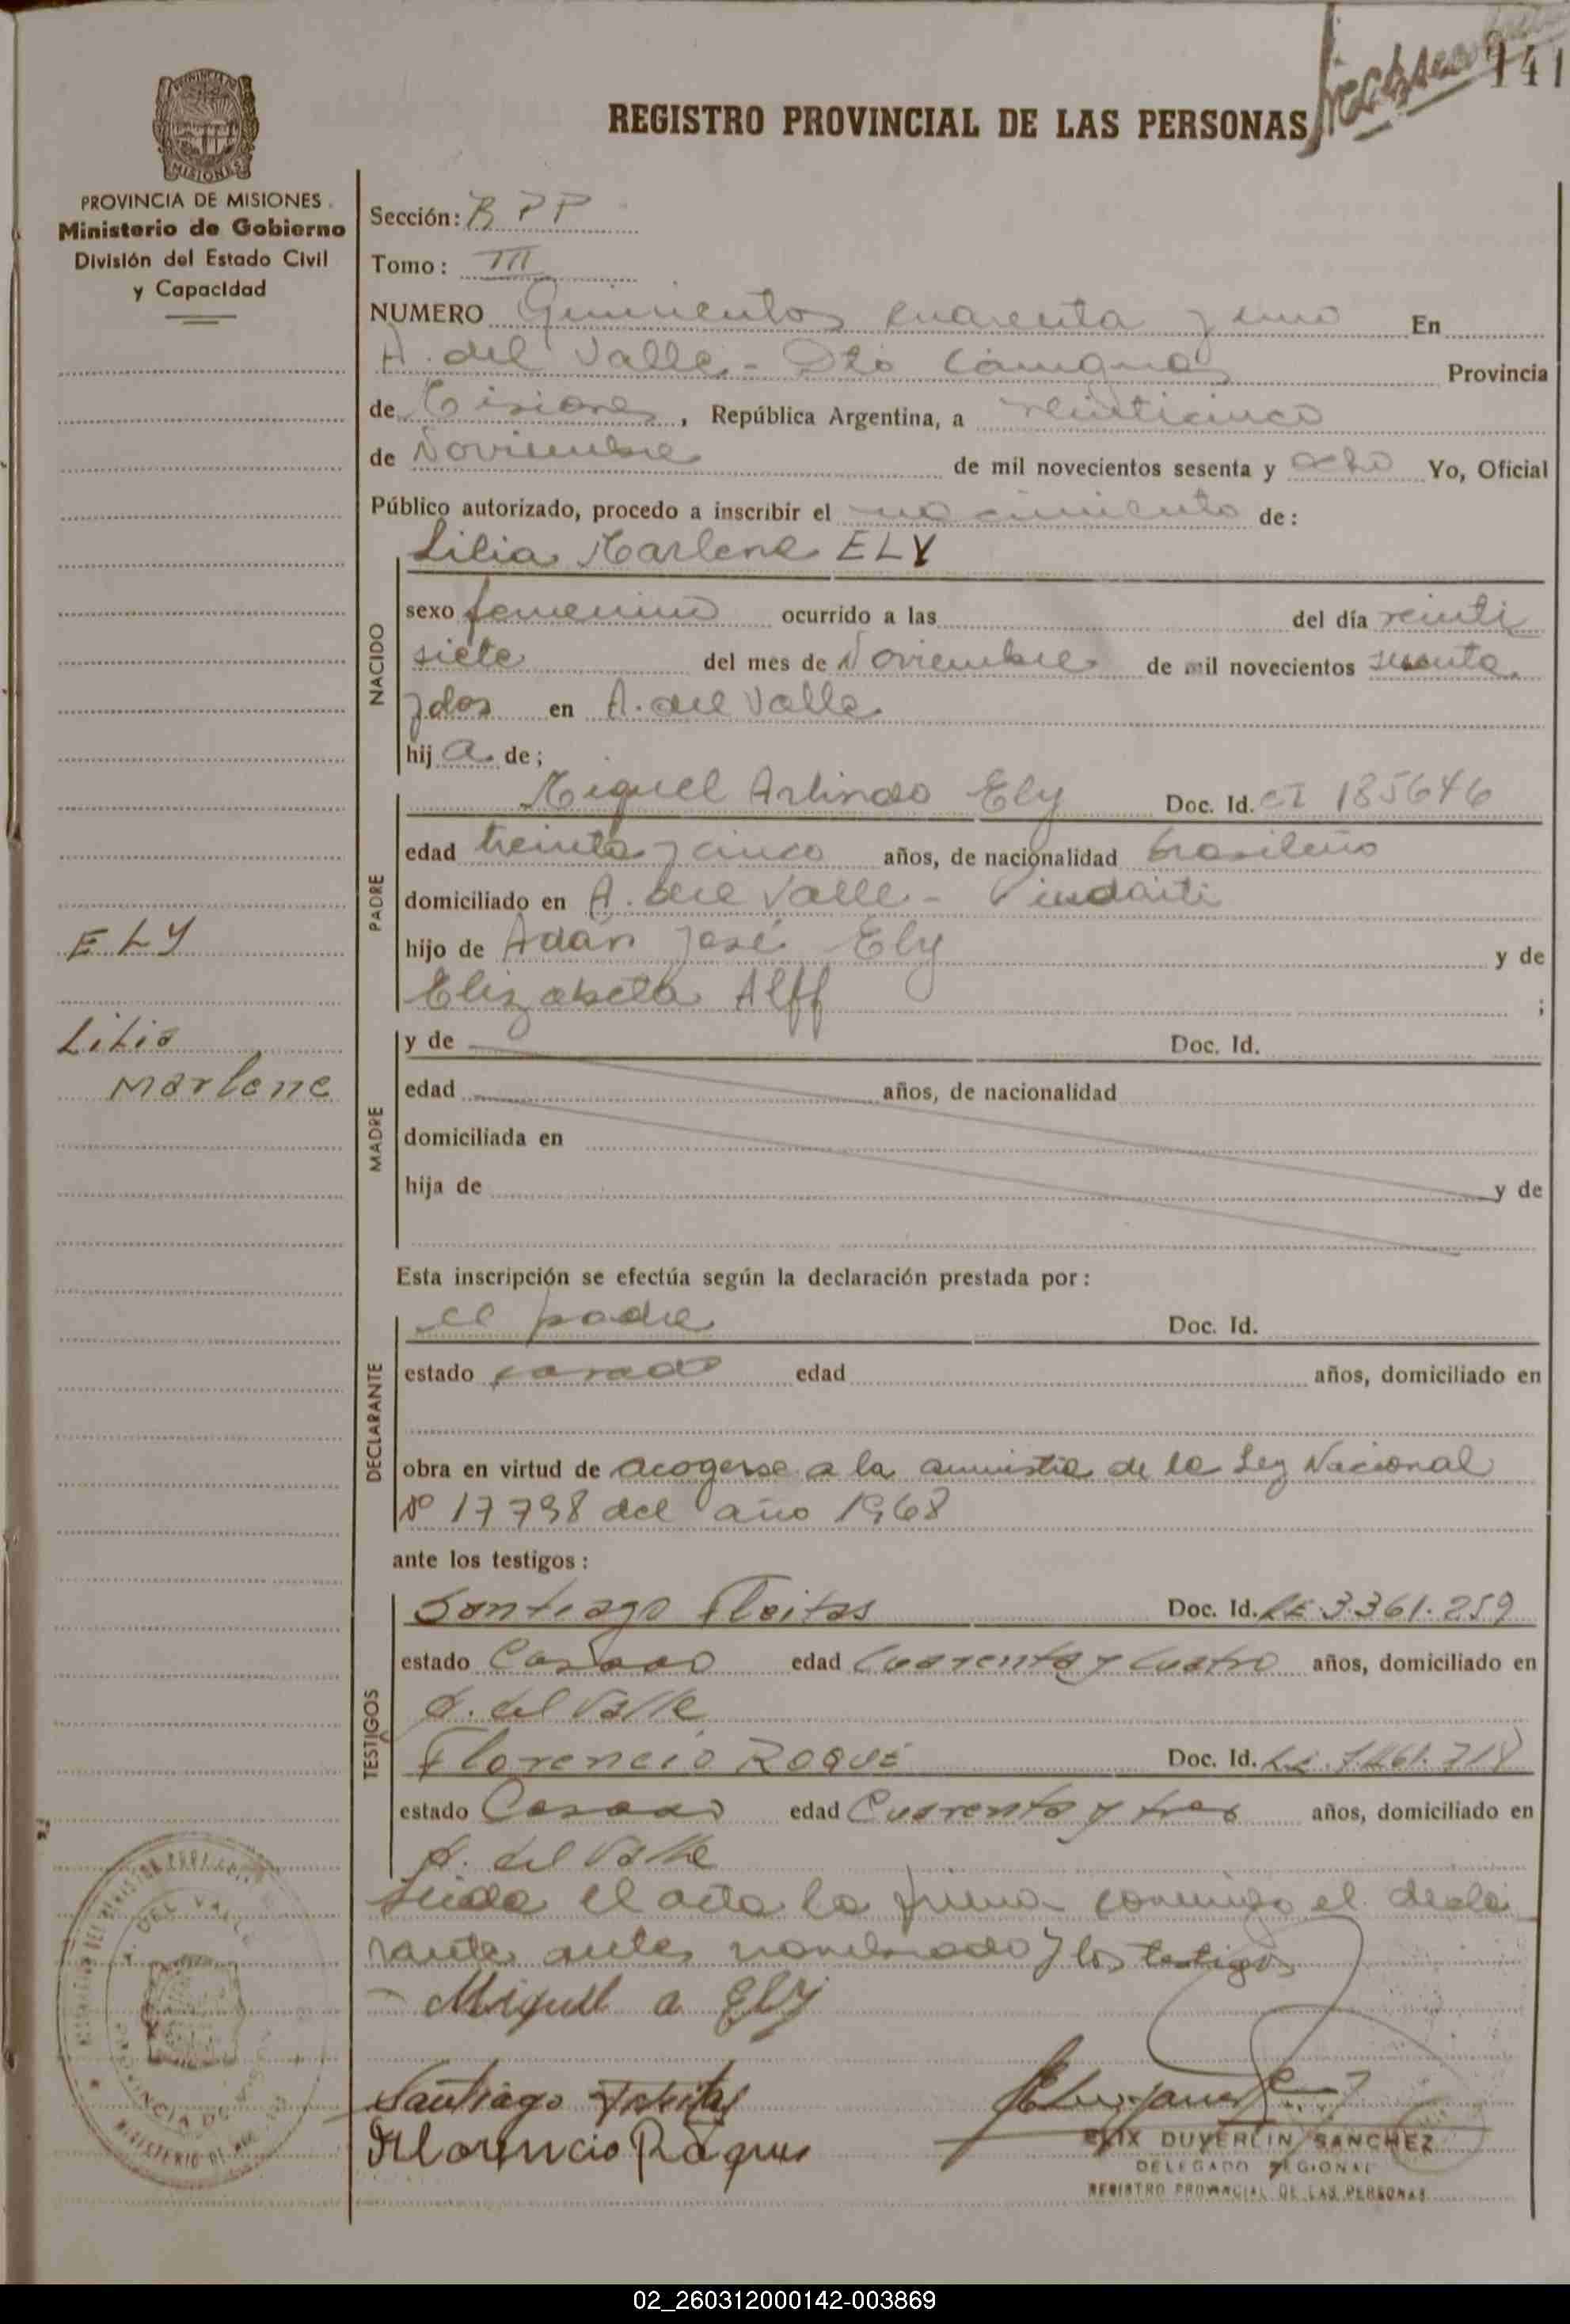 141
PROVINCIA DE MISIONES
Ministerio de Gobierno
División del Estado Civil
y Capacidad
REGISTRO PROVINCIAL DE LAS PERSONAS
Sección: RPP
Tomo: III
NUMERO Quinientos cuarenta y uno En
A. del Valle - Dto Cainguas Provincia
de Misiones, República Argentina, a veinticinco
de Noviembre de mil novecientos sesenta y ocho Yo, Oficial
Público autorizado, procedo a inscribir el nacimiento de:
Lilia Marlene ELY
NACIDO
sexo femenino ocurrido a las del día veinti
siete del mes de Noviembre de mil novecientos sesenta
y dos en A. del Valle
hija de;
PADRE
Miguel Arlindo Ely Doc. Id. CI 185646
edad treinta y cinco años, de nacionalidad brasileño
domiciliado en A. del Valle - Pindaiti
hijo de Adán José Ely y de
Elizabeta Alff ;
ELY
Lilia
Marlene
MADRE
y de Doc. Id.
edad años, de nacionalidad
domiciliada en
hija de y de
Esta inscripción se efectúa según la declaración prestada por:
DECLARANTE
el padre Doc. Id.
estado casado edad años, domiciliado en
obra en virtud de acogerse a la amnistia de la Ley Nacional
Nº 17798 del año 1968
ante los testigos:
TESTIGOS
Santiago Fleitas Doc. Id. LE 3.361.259
estado Casado edad Cuarenta y Cuatro años, domiciliado en
A. del Valle
Florencio ROQUE Doc. Id.
estado Casado edad Cuarenta y tres años, domiciliado en
A. del Valle
Leida el acta la firma conmigo el decla
rante antes nombrado y los testigos
- Miguel a Ely
Santiago Fleitas
Florencio Roque
ELIX DUVERLIN SANCHEZ
DELEGADO REGIONAL
REGISTRO PROVINCIAL DE LAS PERSONAS
02_260312000142-003869